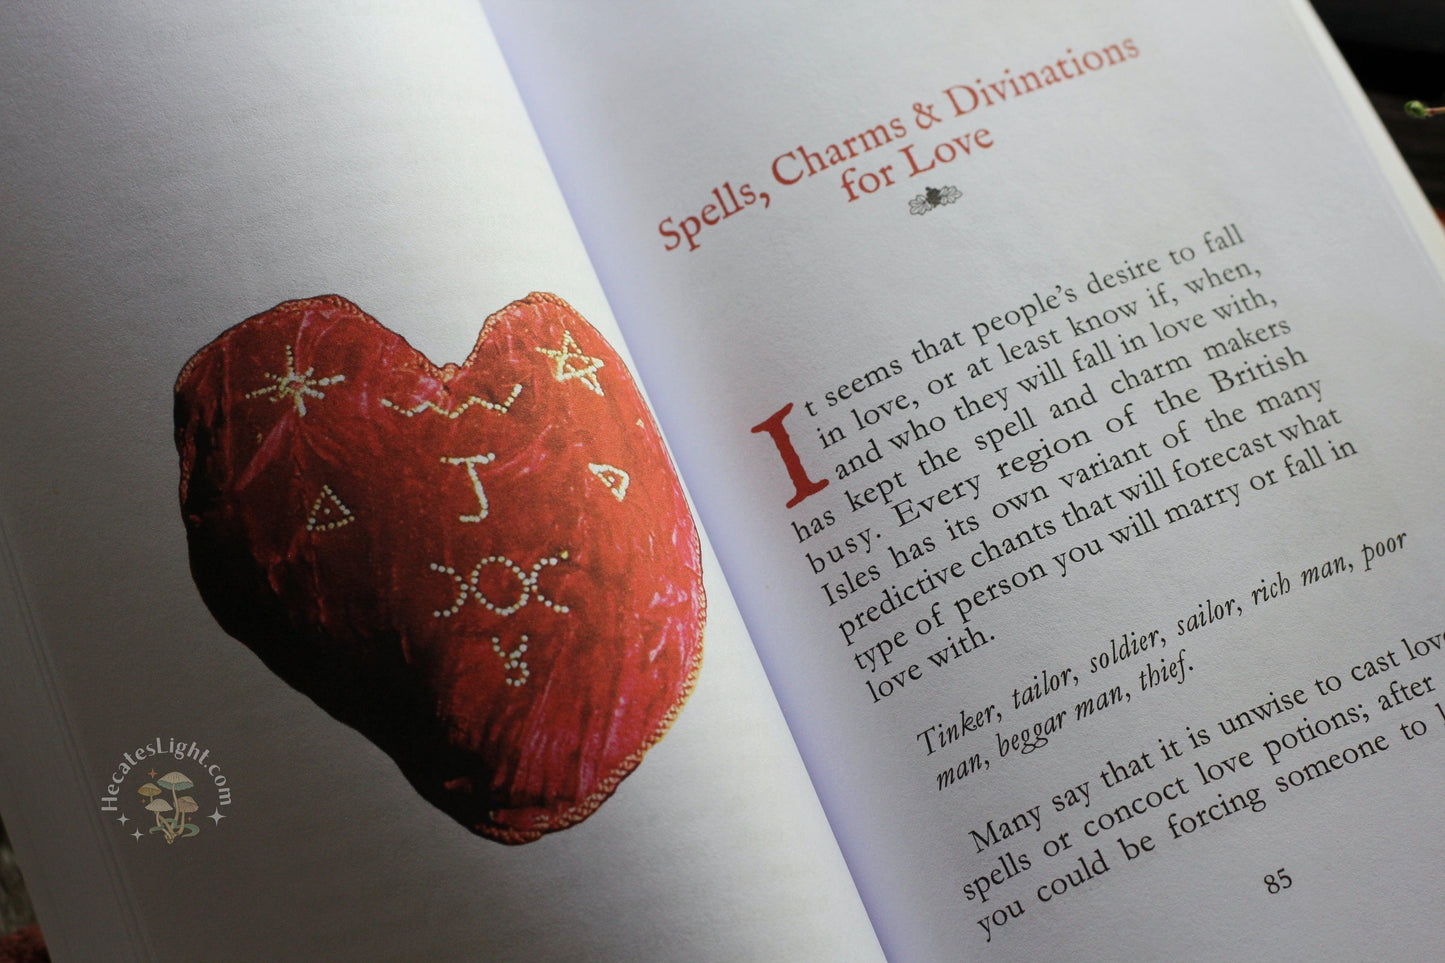 HecatesLight.com
J
Spells, Charms & Divinations
for Love
It seems that people's desire to fall
in love, or at least know if, when,
and who they will fall in love with,
has kept the spell and charm makers
busy. Every region of the British
Isles has its own variant of the many
predictive chants that will forecast what
type of person you will marry or fall in
love with.
Tinker, tailor, soldier, sailor, rich man, poor
man, beggar man, thief.
Many say that it is unwise to cast
spells or concoct love potions; after
you could be forcing someone to
85